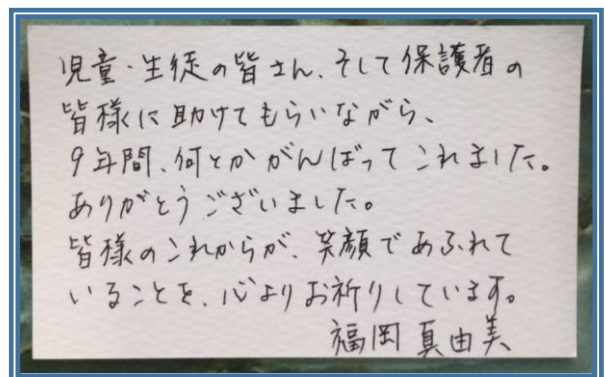 児童・生徒の皆さん、そして保護者の
皆様に助けてもらいながら、
9年間、何とかがんばってこれました。
ありがとうございました。
皆様のこれからが、笑顔であふれて
いることを、心よりお祈りしています。
福岡真由美